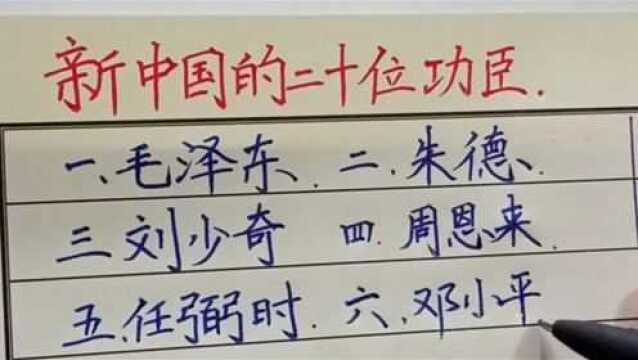 新中国的二十位功臣.
一、毛泽东. 二.朱德、
三刘少奇 四.周恩来.
五.任弼时. 六、邓小平